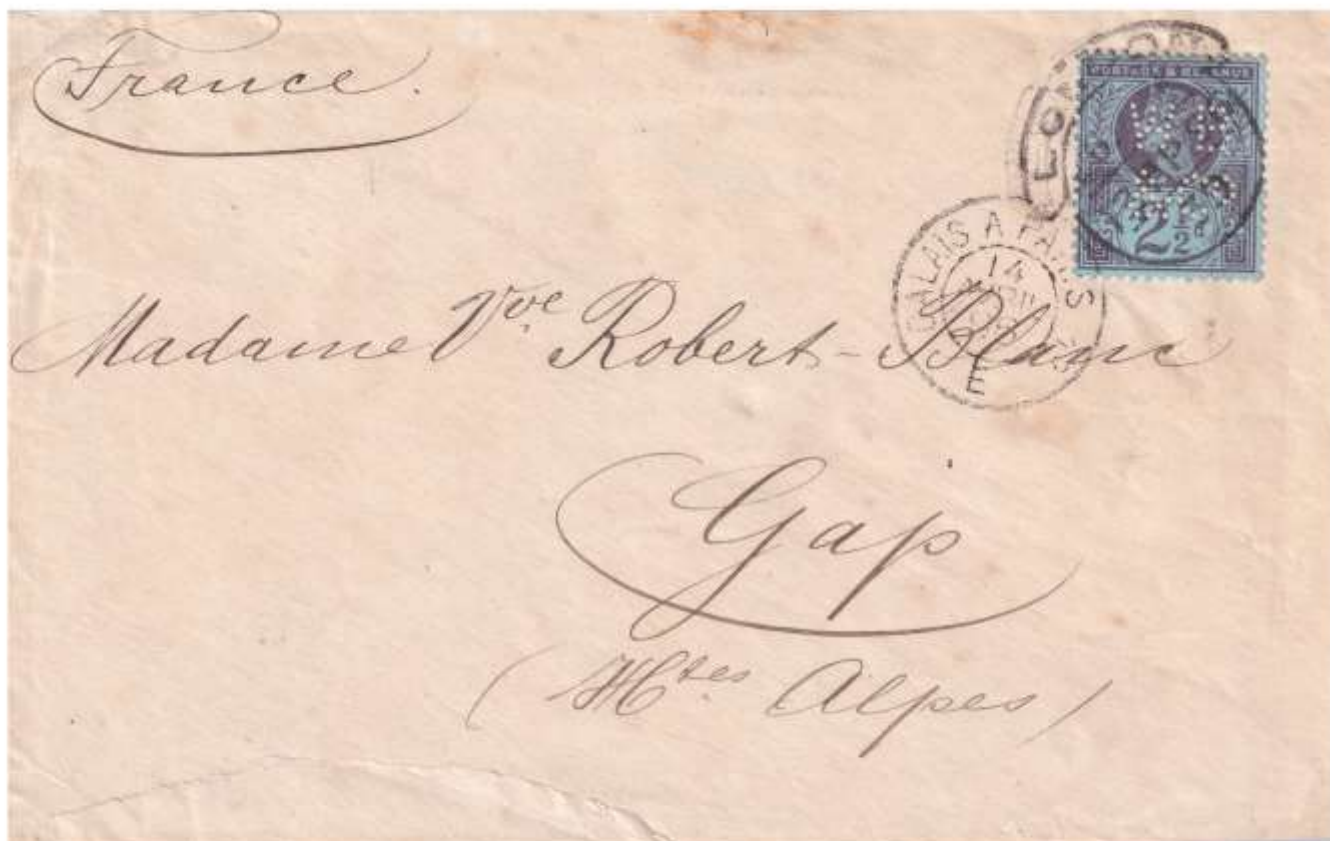 France.
POSTAGE & REVENUE
LONDON
2½
CALAIS A PARIS
14
E
Madame Vve Robert-Blanc
Gap
(Htes Alpes)